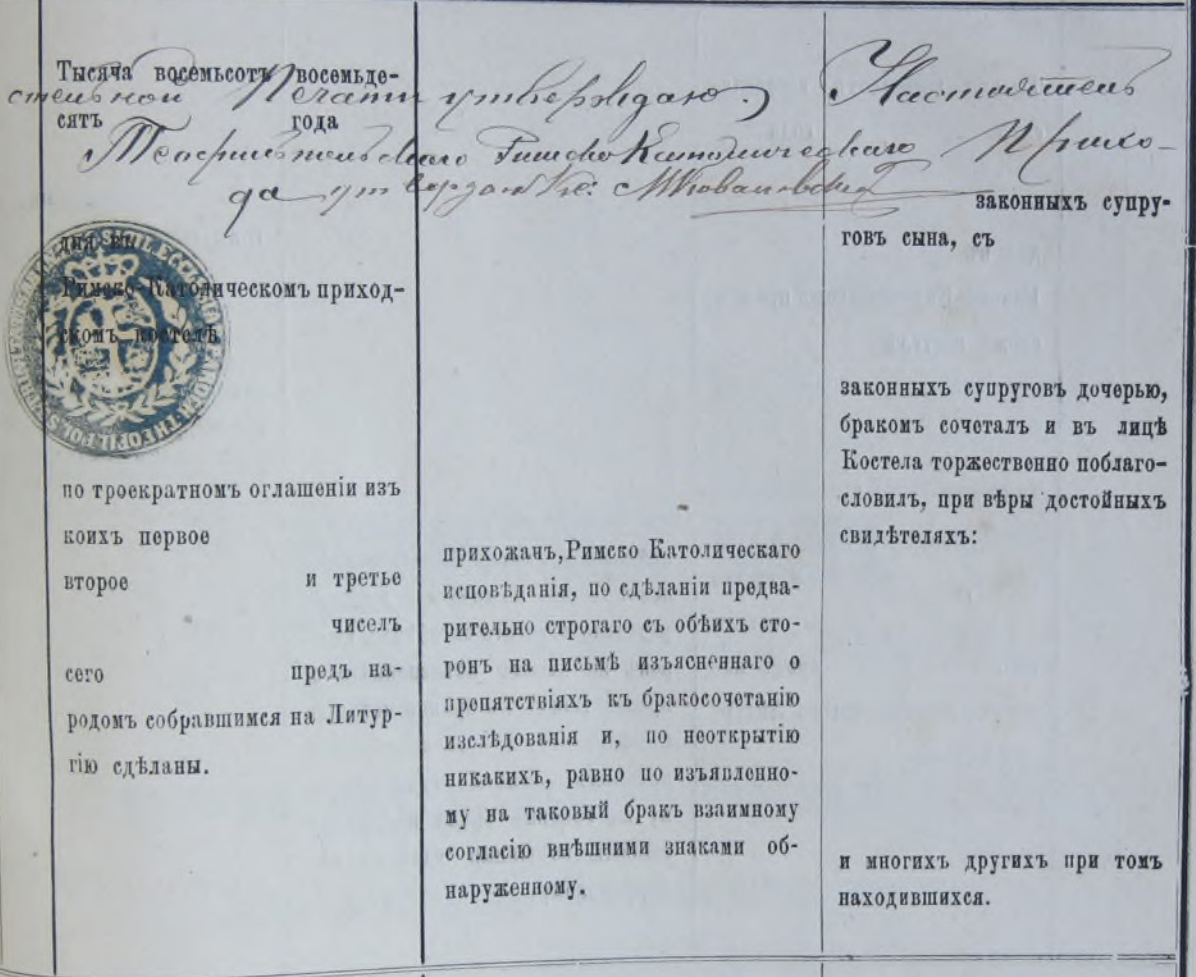 Тысяча восемьсотъ восемьде-
сятъ года
ственной Печати утверждаю. Настоятель
Теофильпольскаго Римско Католическаго Прихо-
да
дня въ
Римско-Католическомъ приход-
скомъ костелѣ
по троекратномъ оглашеніи изъ
коихъ первое
второе и третье
чиселъ
сего предъ на-
родомъ собравшимся на Литур-
гію сдѣланы.
прихожанъ,Римско Католическаго
исповѣданія, по сдѣланіи предва-
рительно строгаго съ обѣихъ сто-
ронъ на письмѣ изъясненнаго о
препятствіяхъ къ бракосочетанію
изслѣдованія и, по неоткрытію
никакихъ, равно по изъявленно-
му на таковый бракъ взаимному
согласію внѣшними знаками об-
наруженному.
законныхъ супру-
говъ сына, съ
законныхъ супруговъ дочерью,
бракомъ сочеталъ и въ лицѣ
Костела торжественно поблаго-
словилъ, при вѣры достойныхъ
свидѣтеляхъ:
и многихъ другихъ при томъ
находившихся.